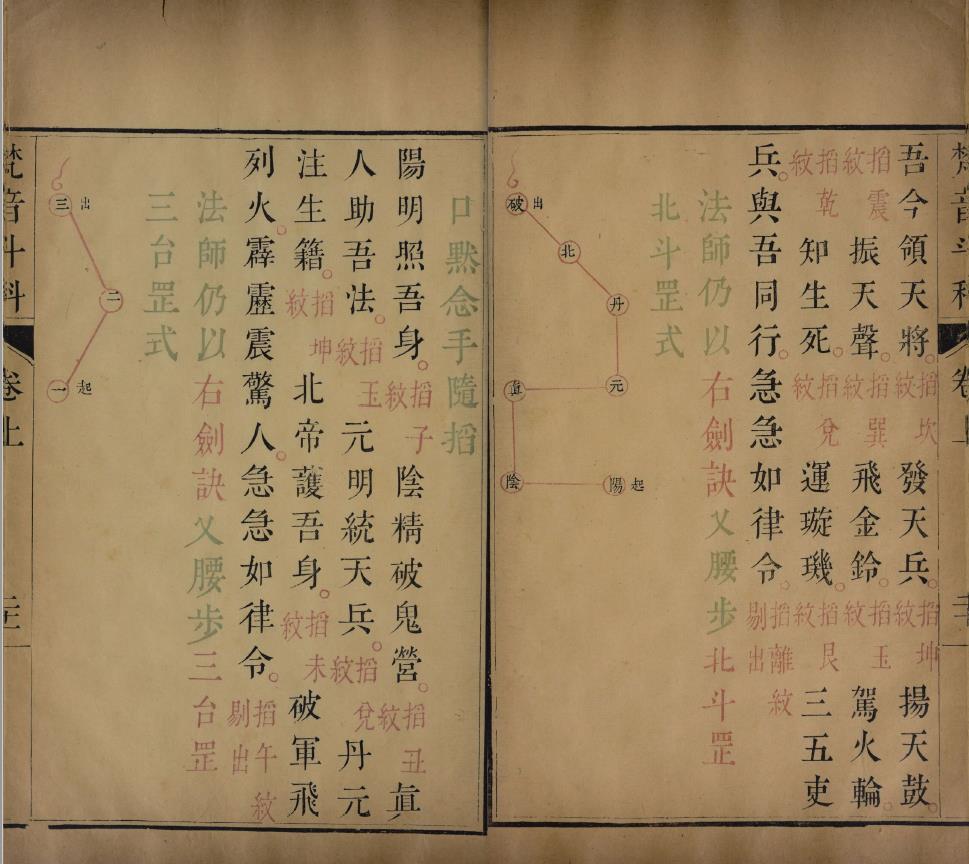 梵音斗科 卷上
吾今領天將。搯坎紋 發天兵。搯坤紋 揚天鼓。
搯震紋 振天聲。搯巽紋 飛金鈴。搯玉紋 駕火輪。
搯乾紋 知生死。搯兌紋 運璇璣。搯艮紋 三五吏
兵。與吾同行。急急如律令。搯離紋剔出
法師仍以右劍訣叉腰步北斗罡
北斗罡式
破 出
北
丹
元
眞
陰
陽 起
口默念手隨搯
陽明照吾身。搯子紋 陰精破鬼營。搯丑紋 眞
人助吾法。搯玉紋 元明統天兵。搯兌紋 丹元
注生籍。搯坤紋 北帝護吾身。搯未紋 破軍飛
列火。霹靂震驚人。急急如律令。搯午紋剔出
法師仍以右劍訣叉腰步三台罡
三台罡式
三 出
二
一 起
梵音斗科 卷上